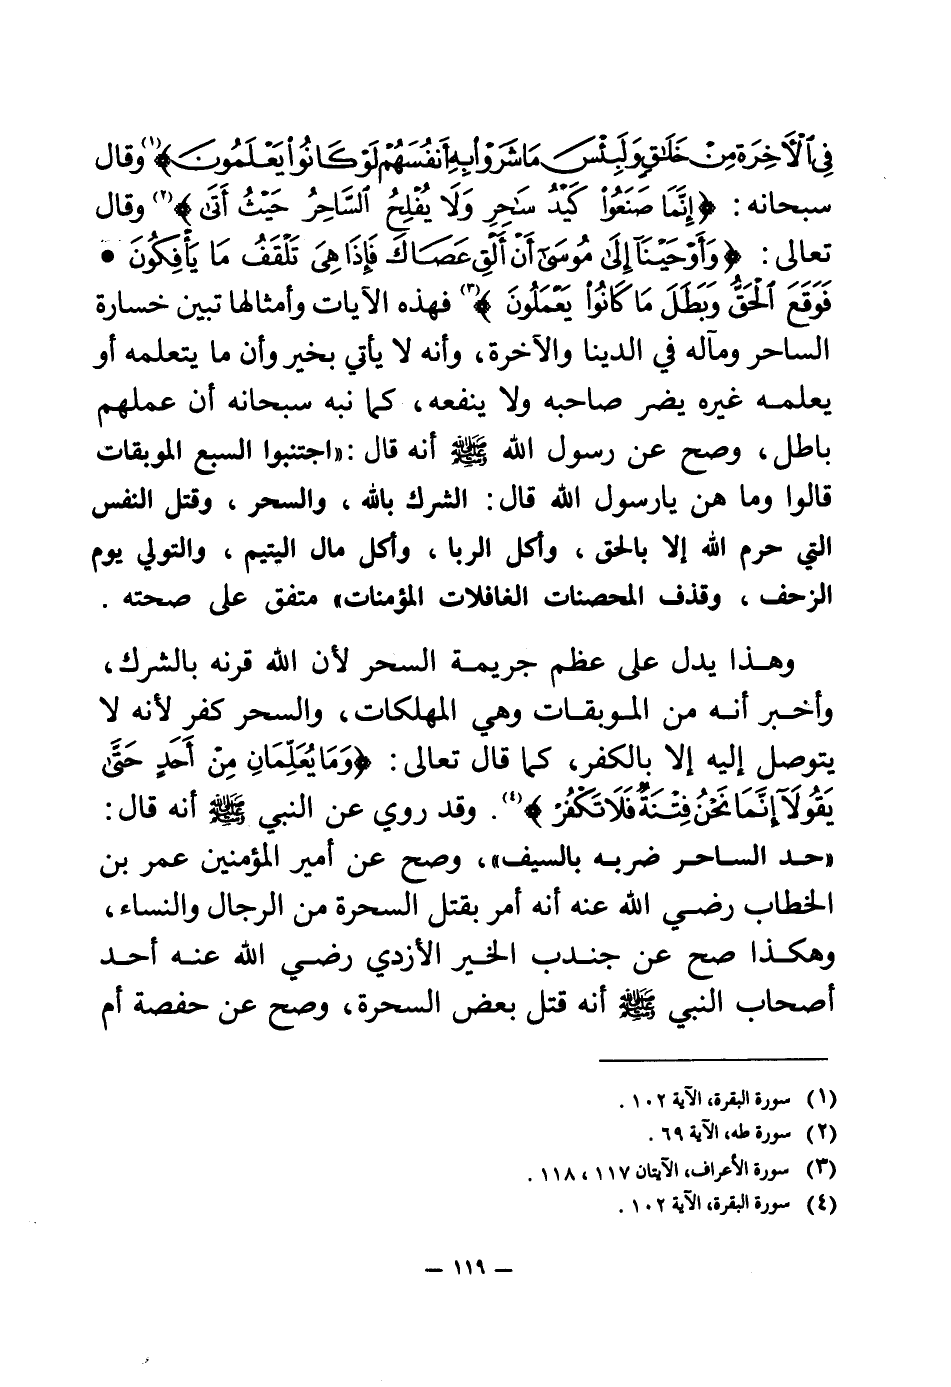 فِي ٱلْأَخِرَةِ مِنْ خَلَٰقٍ وَلَبِئْسَ مَا شَرَوْا۟ بِهِۦٓ أَنفُسَهُمْ لَوْ كَانُوا۟ يَعْلَمُونَ﴾(١) وقال
سبحانه : ﴿إِنَّمَا صَنَعُوا۟ كَيْدُ سَٰحِرٍ وَلَا يُفْلِحُ ٱلسَّاحِرُ حَيْثُ أَتَىٰ﴾(٢) وقال
تعالى : ﴿وَأَوْحَيْنَآ إِلَىٰ مُوسَىٰٓ أَنْ أَلْقِ عَصَاكَ فَإِذَا هِىَ تَلْقَفُ مَا يَأْفِكُونَ •
فَوَقَعَ ٱلْحَقُّ وَبَطَلَ مَا كَانُوا۟ يَعْمَلُونَ﴾(٣) فهذه الآيات وأمثالها تبين خسارة
الساحر ومآله في الدينا والآخرة، وأنه لا يأتي بخير وأن ما يتعلمه أو
يعلمه غيره يضر صاحبه ولا ينفعه، كما نبه سبحانه أن عملهم
باطل، وصح عن رسول الله ﷺ أنه قال :«اجتنبوا السبع الموبقات
قالوا وما هن يارسول الله قال : الشرك بالله ، والسحر ، وقتل النفس
التي حرم الله إلا بالحق ، وأكل الربا ، وأكل مال اليتيم ، والتولي يوم
الزحف ، وقذف المحصنات الغافلات المؤمنات» متفق على صحته .
وهذا يدل على عظم جريمة السحر لأن الله قرنه بالشرك،
وأخبر أنه من الموبقات وهي المهلكات، والسحر كفر لأنه لا
يتوصل إليه إلا بالكفر، كما قال تعالى : ﴿وَمَا يُعَلِّمَانِ مِنْ أَحَدٍ حَتَّىٰ
يَقُولَآ إِنَّمَا نَحْنُ فِتْنَةٌ فَلَا تَكْفُرْ﴾(٤). وقد روي عن النبي ﷺ أنه قال :
«حد الساحر ضربه بالسيف»، وصح عن أمير المؤمنين عمر بن
الخطاب رضي الله عنه أنه أمر بقتل السحرة من الرجال والنساء،
وهكذا صح عن جندب الخير الأزدي رضي الله عنه أحد
أصحاب النبي ﷺ أنه قتل بعض السحرة، وصح عن حفصة أم
(١) سورة البقرة، الآية ١٠٢ .
(٢) سورة طه، الآية ٦٩ .
(٣) سورة الأعراف، الآيتان ١١٧ ، ١١٨ .
(٤) سورة البقرة، الآية ١٠٢ .
— ١١٩ —